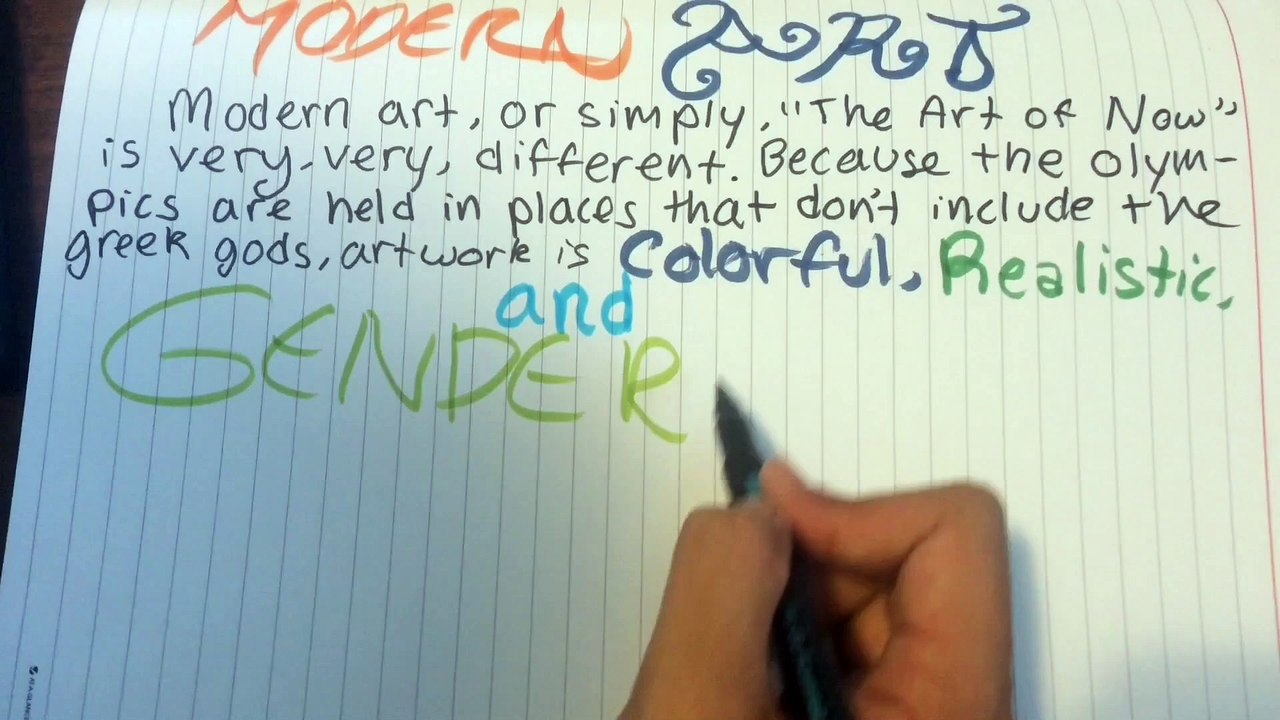 MODERN ART
Modern art, or simply, "The Art of Now"
is very, very, different. Because the olym-
pics are held in places that don't include the
greek gods, artwork is Colorful, Realistic,
and
GENDER